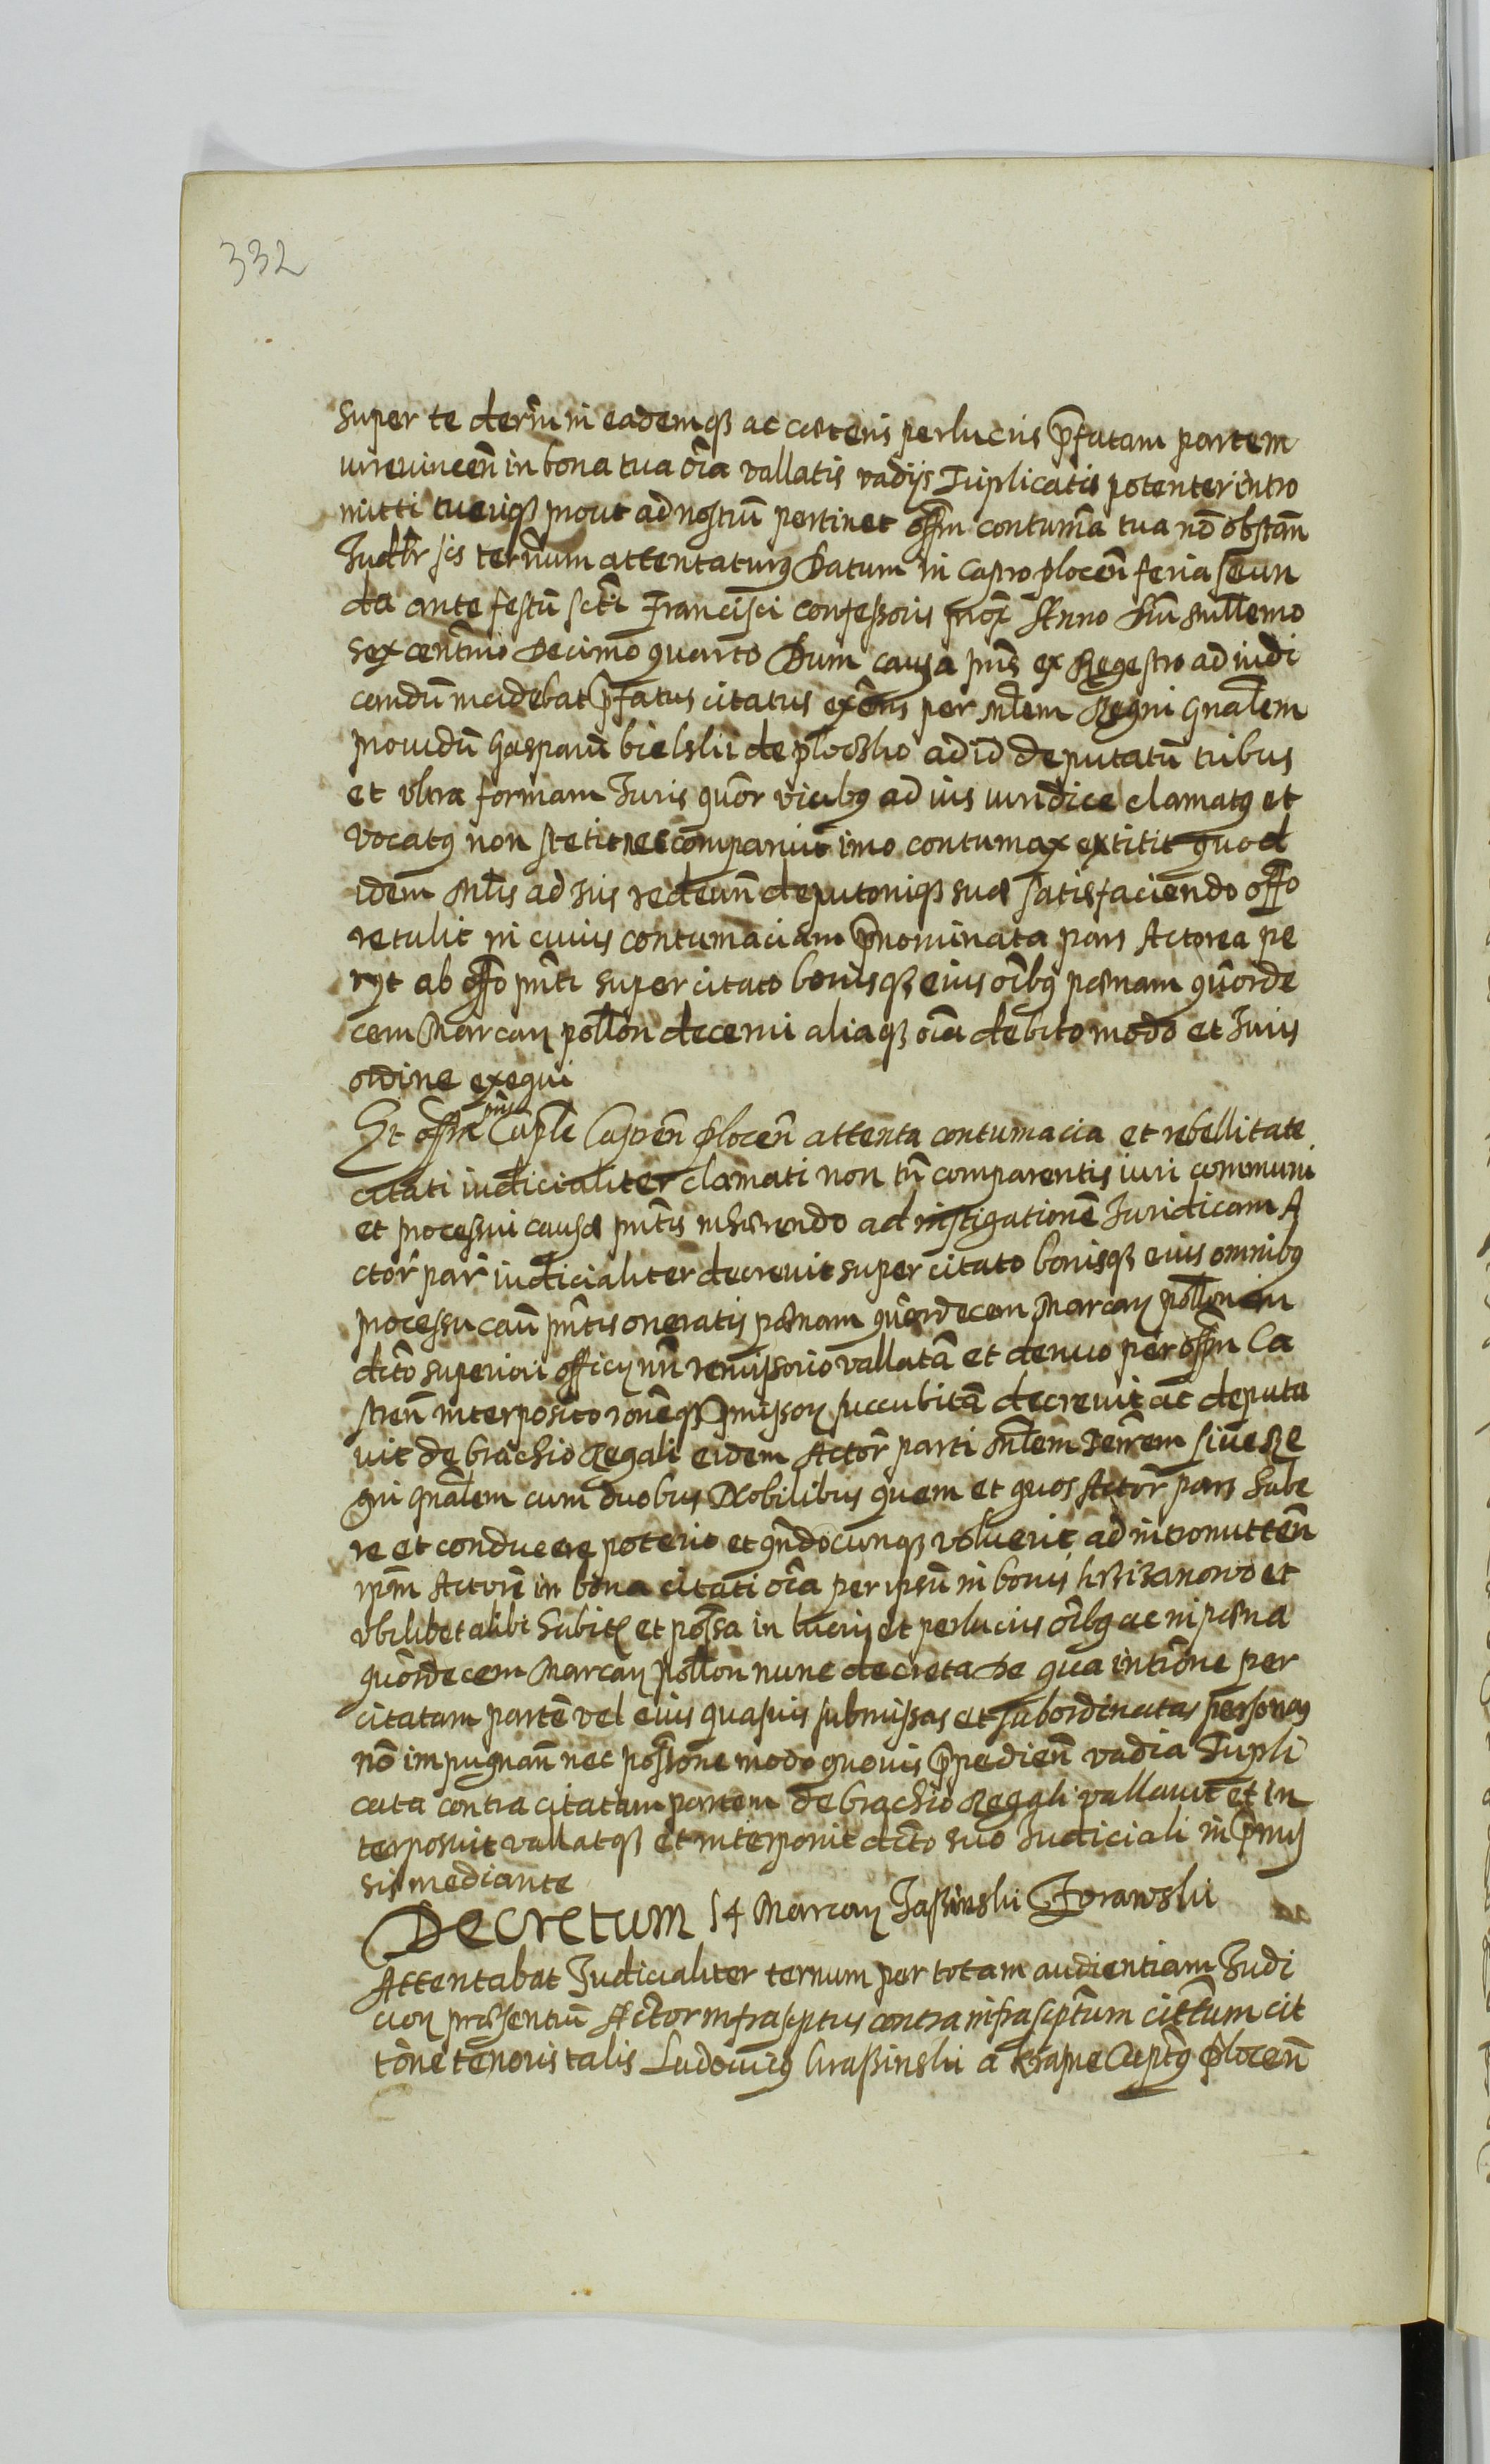 332
super te decerni in eademqꝫ ac cæteris perlucris p̄fatam partem
iurevincen̄ in bona tua oīa vallatis vadijs Triplicatis potenter intro
mitti tueriqꝫ prout ad nostrum̄ pertinet offm̄ contumā tua nō obstan̄
Judlr̄ sis terīnum attentaturꝰ Datum in Castro plocen̄ feria secun
da ante festū sctī Francisci confessoris prox̄ Anno Dnī millemo
sexcentmo Decimo quarto Dum causa pn̄s ex Regestro ad iudi
candū incidebat p̄fatus citatus exn̄s per mlem Regni gnalem
prouidū Gasparū bielski de plocsko ad id deputatū tribus
et vltra formam Juris quor̄ vicibꝰ ad ius iuridice clamatꝰ et
vocatꝰ non stetit nec comparuit imo contumax extitit quod
idem mlis ad Jus redeun̄ deputoniqꝫ suæ satisfaciendo offo
retulit in cuius contumaciam p̄nominata pars Actorea pe
tijt ab offo pn̄ti super citato bonisqꝫ eius oībꝰ pœnam quorde
cem Marcarꝫ pollon̄ decerni aliaqꝫ oīa debito modo et Juris
ordine exequi
Et offm pn̄s Capłe Castren̄ plocen̄ attenta contumacia et rebellitate
citati iudicialiter clamati non tn̄ comparentis iuri communi
et processui causæ pn̄tis inhærendo ad instigationē Juridicam A
ctor̄ par̄ iudicialiter decrevit super citato bonisqꝫ eius omnibꝰ
processu cau pn̄tis oneratis pœnam quordecem Marcarꝫ pollon in
dcto superiori officij nr̄i remissorio vallatā et denuo per offm̄ Ca
stren̄ interposito ronēqꝫ p̄missorꝫ succubitā decrevit ac deputa
vit de brachio Regali eidem Actor̄ parti mlem Terrem siue Re
gni gnalem cum duobus Nobilibus quem et quos Actor̄ pars habe
re et conducere poterit et qn̄docunqꝫ voluerit ad intromitten̄
ipm̄ Actorē in bona citati oīa per ipsū in bonis krzizanowo et
vbilibet alibi habita et possa in lucris et perlucris oībꝰ ac in pœna
quordecem Marcarꝫ pollon nunc decreta De qua intrōne per
citatam partē vel eius quasuis submissas et subordinatas personas
nō impugnan̄ nec possione modo quouis p̄pedien̄ vadia Tripli
cata contra citatam partem de brachio Regali vallauit et in
terposuit vallatqꝫ et interponit dcto suo Judiciali in p̄mis
sis mediante
Decretum 14 Marcarꝫ Jassinski Zorawski
Attentabat Judicialiter ternum per totam audientiam Judi
ciorꝫ præsentiū Actor infrascptus contra infrascptum cittum cit
tōne tenoris talis Ludouicꝰ krassinski a krasne Captꝰ plocen̄